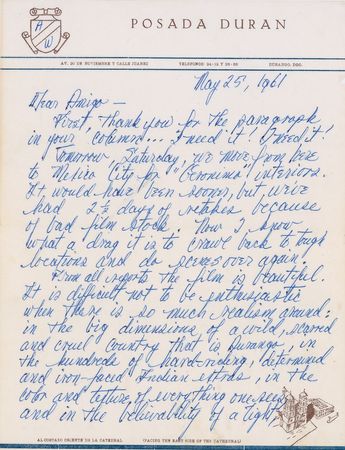 A W
POSADA DURAN
AV. 20 DE NOVIEMBRE Y CALLE JUAREZ TELEFONOS: 24-12 Y 28-80 DURANGO, DGO.
May 25, 1961
Dear Amigo —
First, thank you for the paragraph
in your column... I need it! I need it!
Tomorrow, Saturday, we move from here
to Mexico City for "Geronimo" interiors.
It would have been sooner, but we've
had 2½ days of retakes because
of bad film stock. Now I know
what a drag it is to crawl back to tough
locations and do scenes over again.
From all reports the film is beautiful.
It is difficult not to be enthusiastic
when there is so much realism around:
in the big dimensions of a wild, scarred
and cruel country that is Durango, in
the hundreds of hard-riding, determined
and iron-faced Indian extras, in the
color and texture of everything one sees
and in the believability of a tight
AL COSTADO ORIENTE DE LA CATEDRAL (FACING THE EAST SIDE OF THE CATHEDRAL)